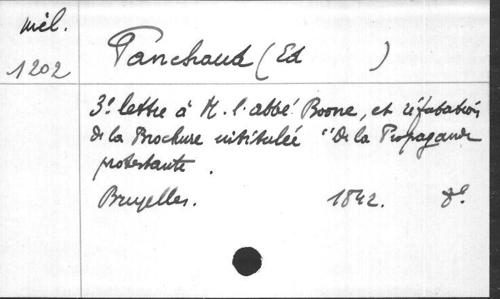 mél.
1202
Panchaud (Ed )
3e lettre à M. l'abbé Boone, et réfutation
de la Brochure intitulée "De la Propagande
protestante.
Bruxelles. 1842. 8°.